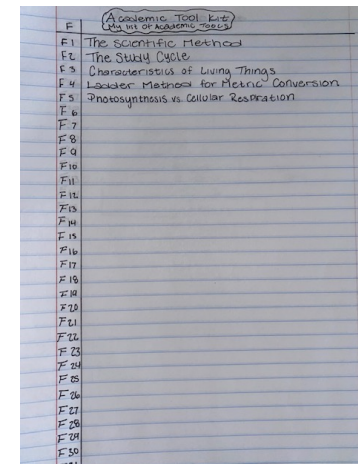 Academic Tool Kit
F My list of Academic Tools
F1 The Scientific Method
F2 The Study Cycle
F3 Characteristics of Living Things
F4 Ladder Method for Metric Conversion
F5 Photosynthesis vs. Cellular Respiration
F6
F7
F8
F9
F10
F11
F12
F13
F14
F15
F16
F17
F18
F19
F20
F21
F22
F23
F24
F25
F26
F27
F28
F29
F30